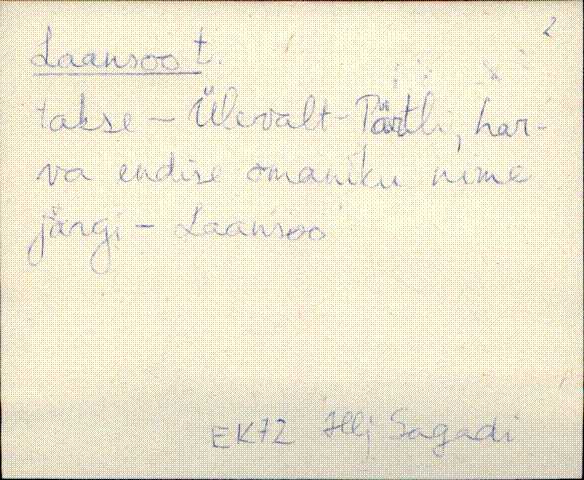 2
Laansoo t.
takse - Ülevalt-Pärtli, har-
va endise omaniku nime
järgi - Laansoo
EK72 Hlj Sagadi